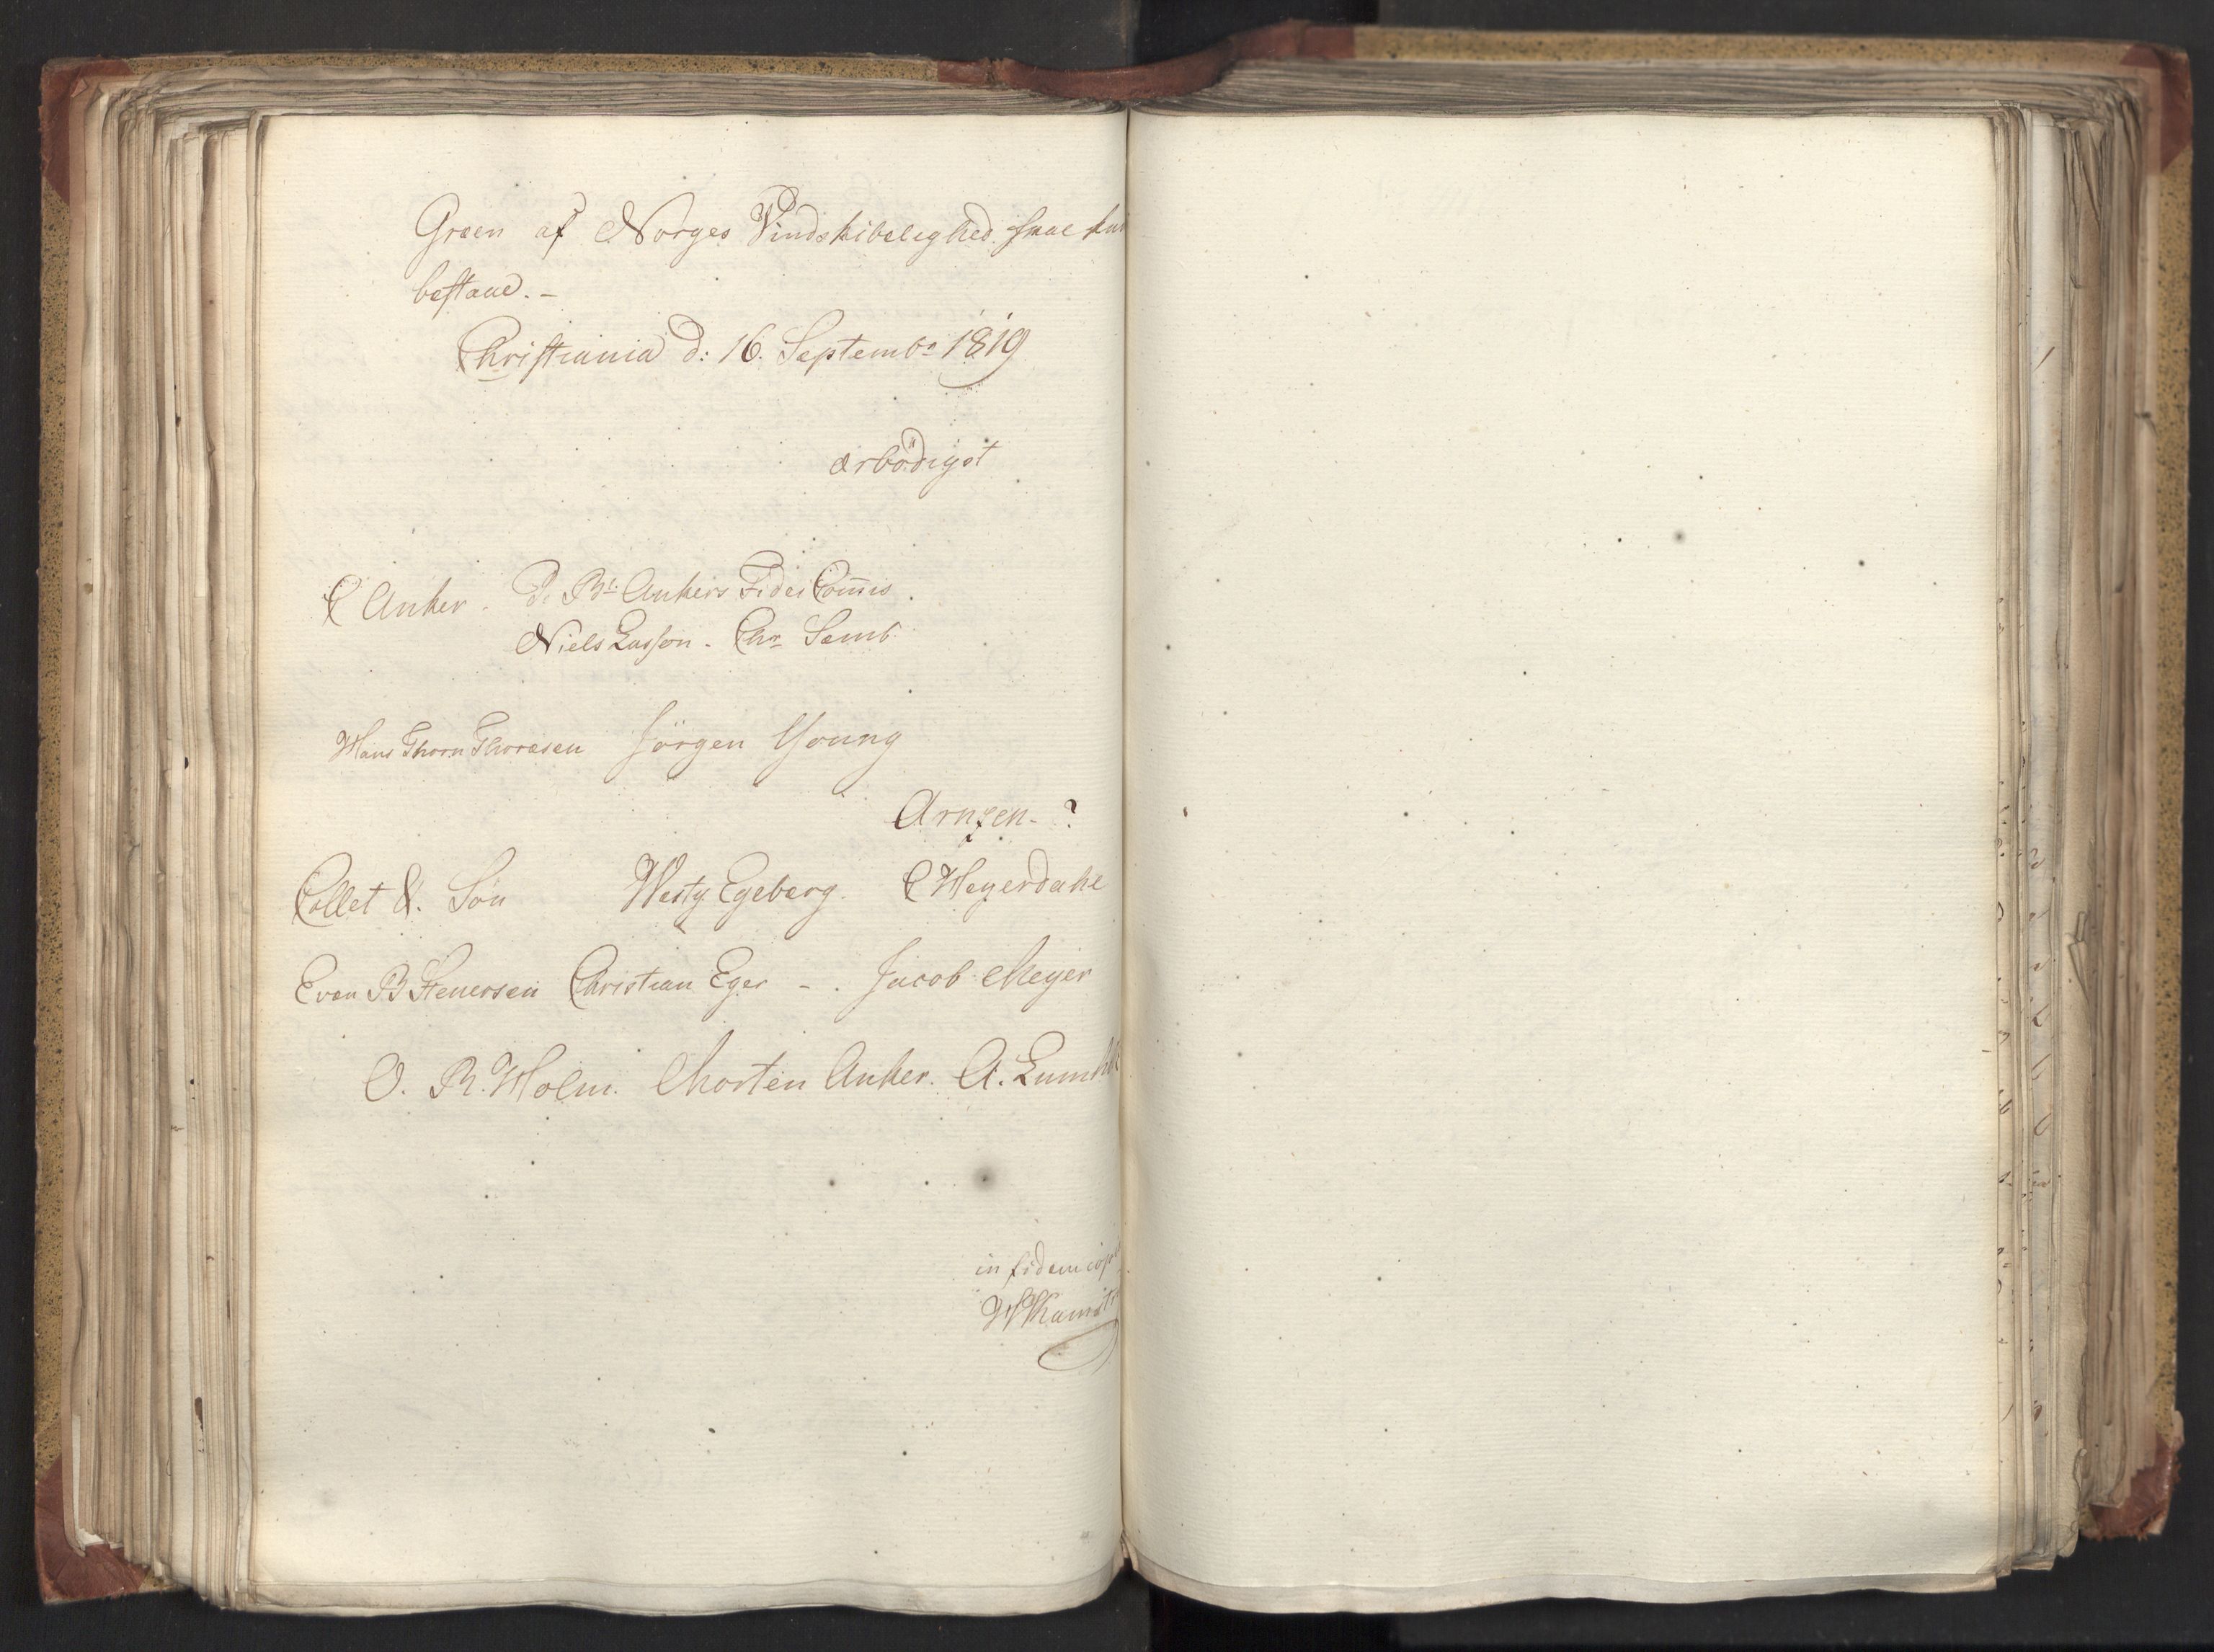 Green af Norges Vindskibelighed skal kun
bestaae. -
Christiania d: 16. Septembr 1819
ærbödigst
C Anker. P. Bt Ankers FideiCom̅is.
Niels Lasson. Chr Semb
Hans Thorn Thoresen Jörgen Young
Arnzen - ?
Collet & Sön Westy Egeberg. C Heyerdahl
Even B Steuersen Christian Eger - . Jacob Meyer
O. R. Holm. Morten Anker. A.
in fidem